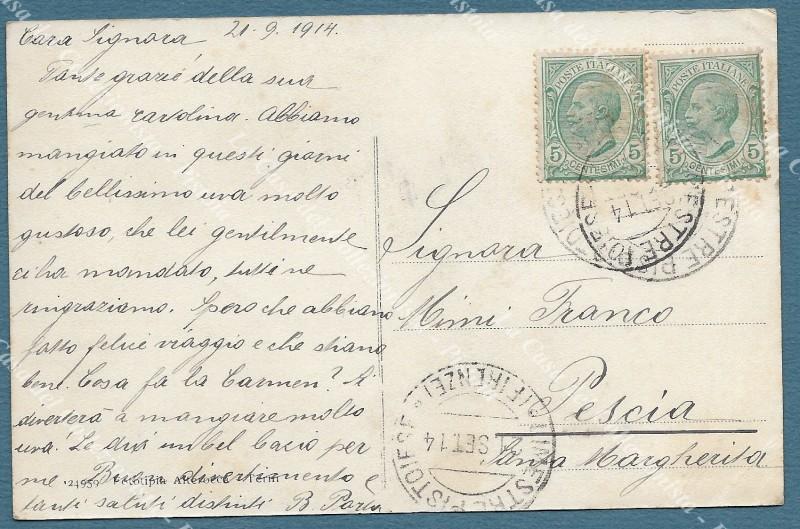 21-9. 1914.
Cara Signora
Tante grazie della sua
gentima cartolina. Abbiamo
mangiato in questi giorni
del bellissimo uva molto
gustoso, che lei gentilmente
ci ha mandato, tutti ne
ringraziamo. Spero che abbiano
fatto felice viaggio e che stiano
bene. Cosa fa la Carmen? Si
divertera a mangiare molto
uva! Le dia un bel bacio per
me. Buon divertimento e
tanti saluti distinti B.
21959
POSTE ITALIANE
5 5
CENTESIMI
POSTE ITALIANE
5 5
CENTESIMI
Signora
Mimi Franco
Pescia
Santa Margherita
MAESTRE PISTOIESE
(FIRENZE)
SET.14